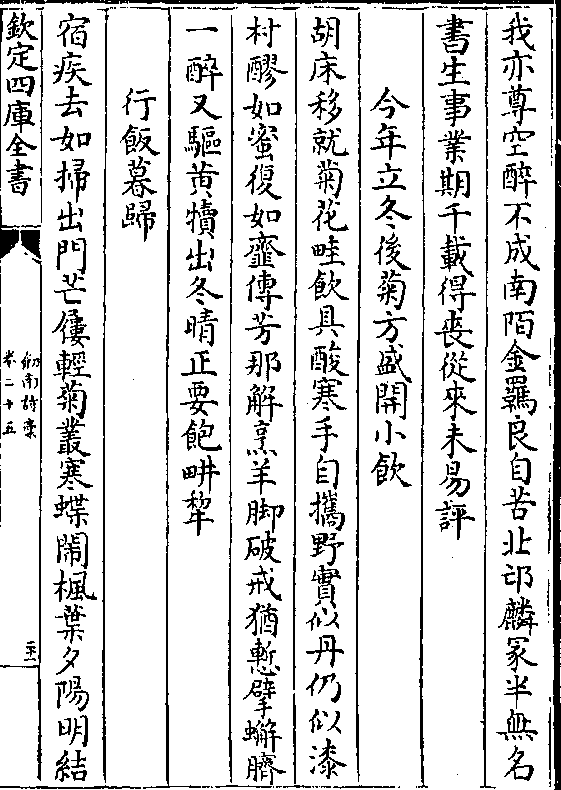 我亦尊空醉不成南陌金羈良自苦北邙麟冢半無名
書生事業期千載得喪從來未易評
今年立冬後菊方盛開小飲
胡床移就菊花畦飲具酸寒手自攜野實似丹仍似漆
村醪如蜜復如虀傳芳那解烹羊脚破戒猶慙擘蠏臍
一醉又驅黄犢出冬晴正要飽畊犂
行飯暮歸
宿疾去如掃出門芒屨輕菊叢寒蝶鬧楓葉夕陽明結
欽定四庫全書
劍南詩稾
卷二十五
二十二